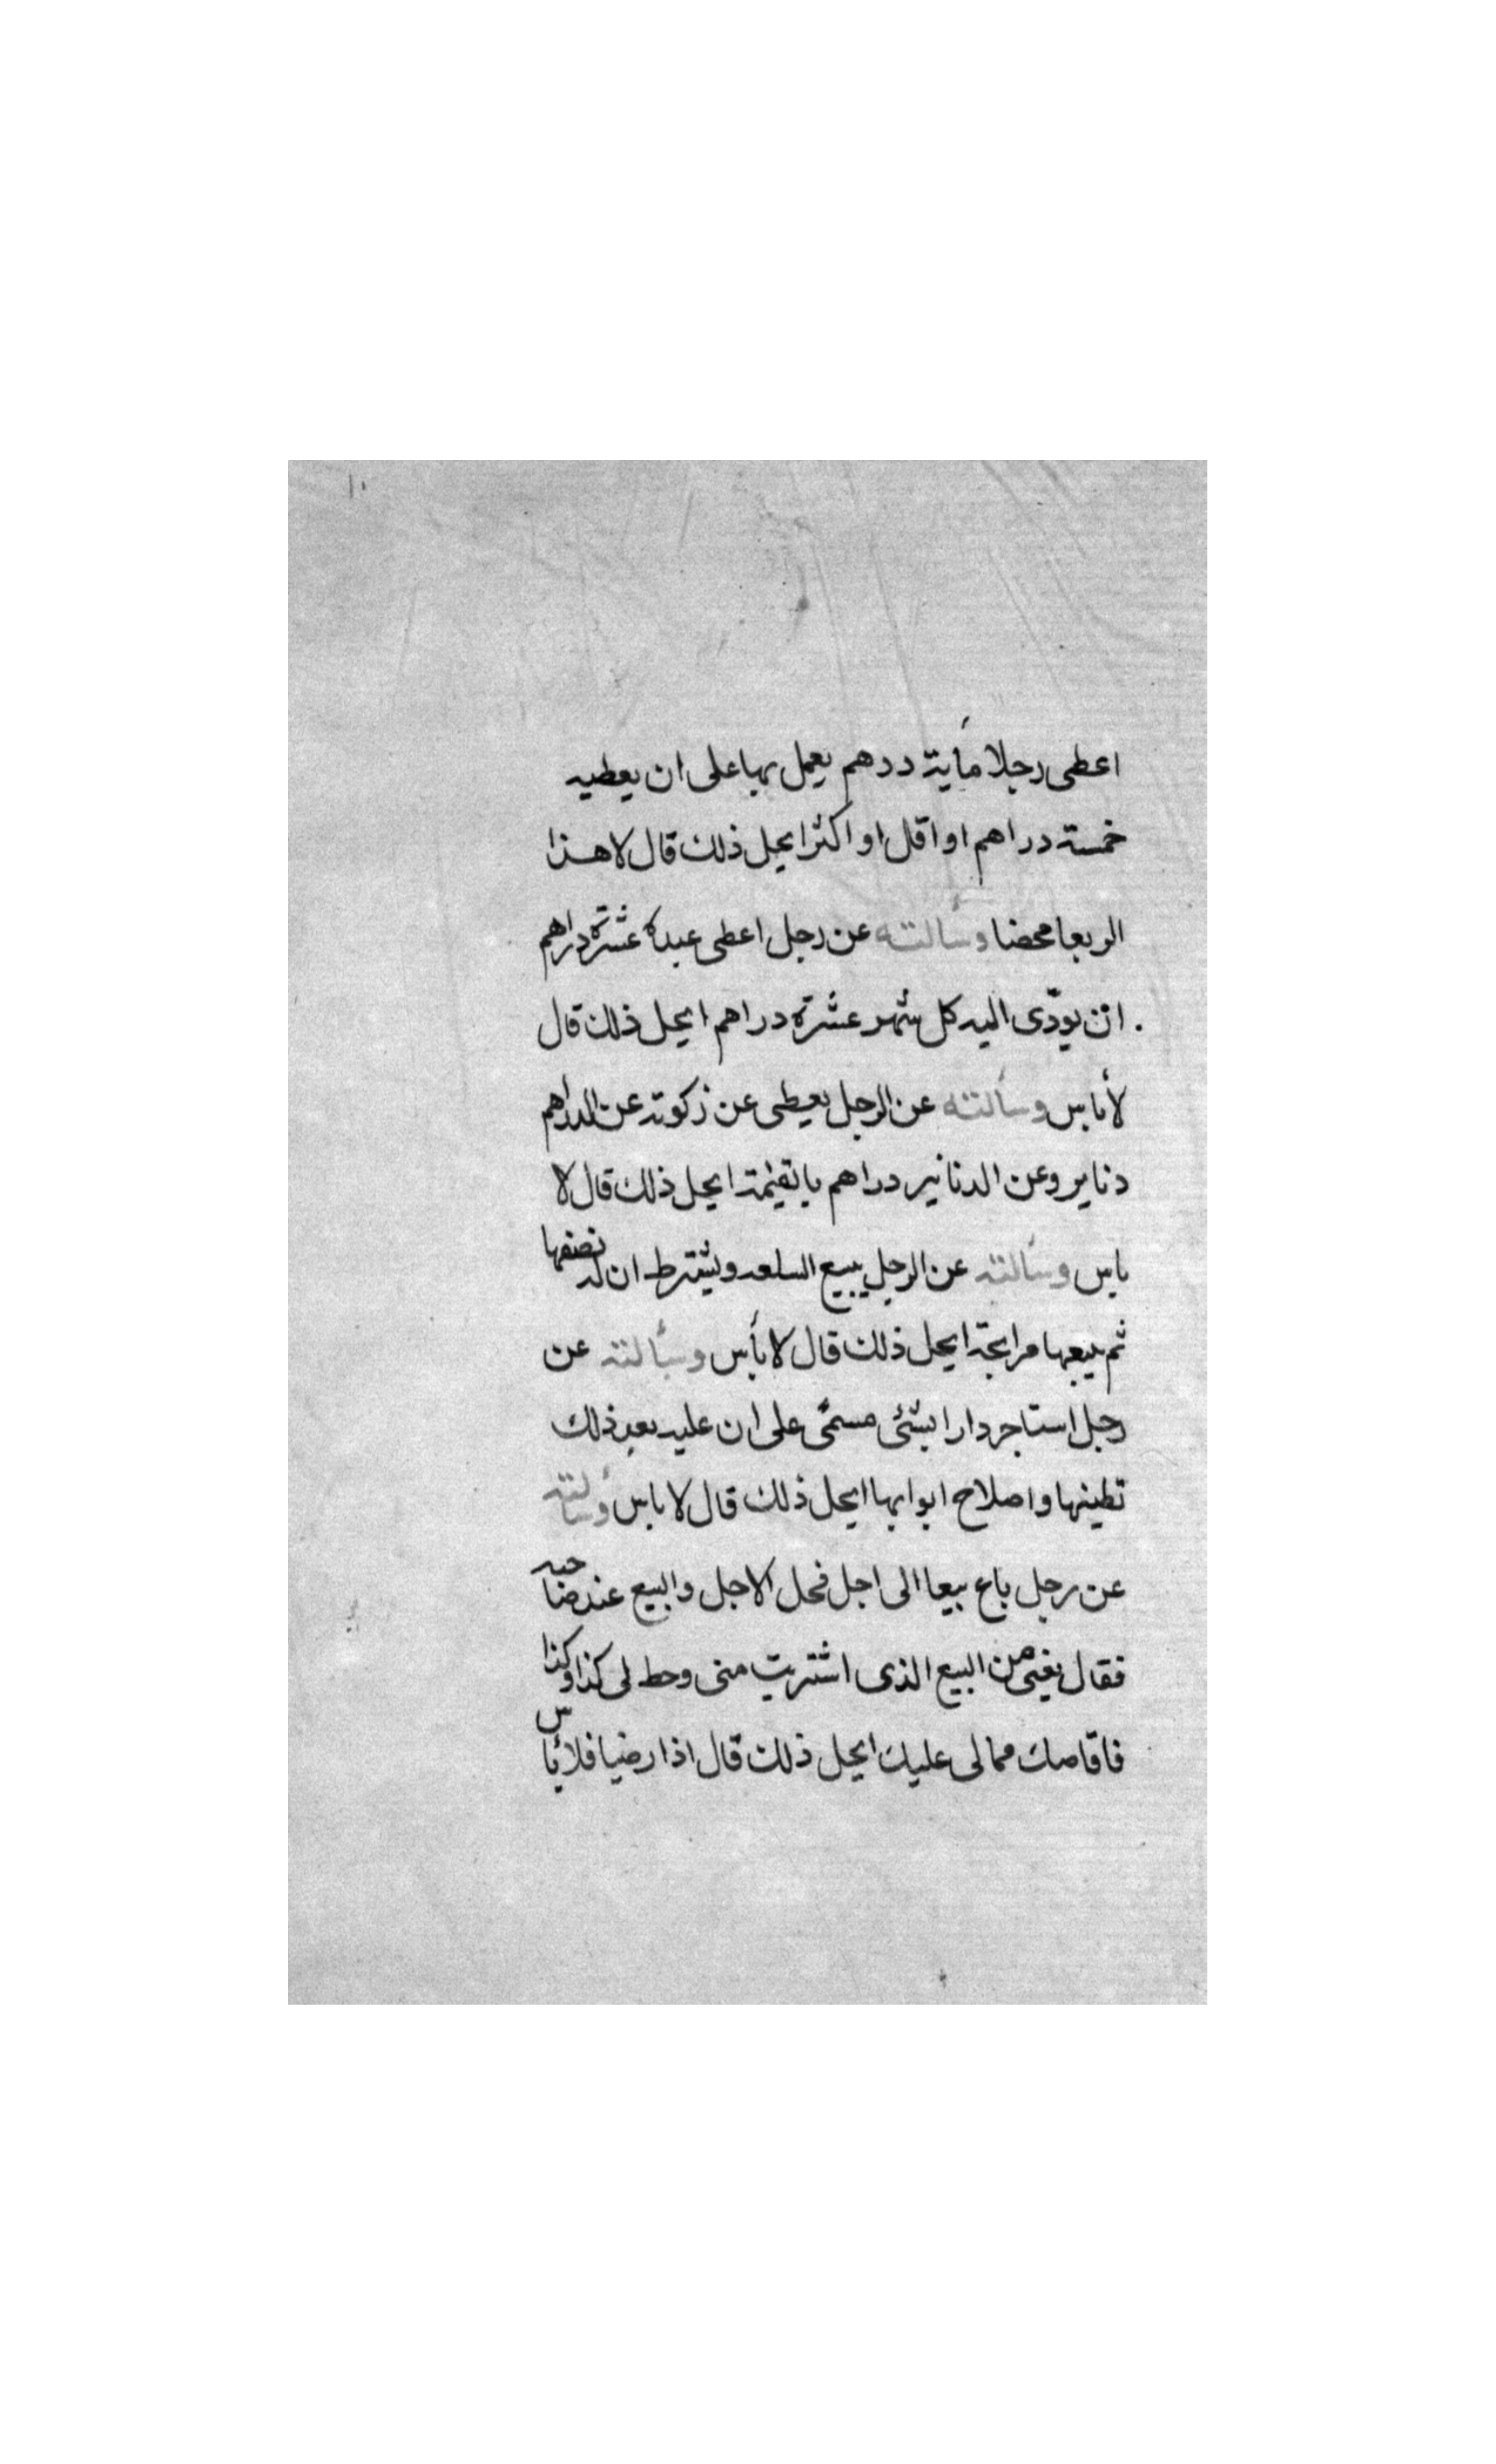 ١٠
اعطى رجلا مأية درهم يعمل بها على ان يعطيه
خمسة دراهم او اقل او اكثر ايحل ذلك قال لا هذا
الربعا محضا وسألته عن رجل اعطى عبده عشرة دراهم
ان يودّى اليه كل شهر عشرة دراهم ايحل ذلك قال
لا باس وسألته عن الرجل يعطى عن زكوته عن الدراهم
دنانير وعن الدنانير دراهم بالقيمة ايحل ذلك قال لا
باس وسألته عن الرجل يبيع السلعه ويشترط ان له نصفها
ثم يبيعها مرابحة ايحل ذلك قال لا بأس وسألته عن
رجل استاجر دارا بشئى مسمّى على ان عليه بعد ذلك
تطينها واصلاح ابوابها ايحل ذلك قال لا باس وسألته
عن رجل باع بيعا الى اجل فحل الاجل والبيع عند صاحبه
فقال من البيع الذى اشتريت منى وحط لى كذا وكذا
فاقاصك مما لى عليك ايحل ذلك قال اذا رضيا فلا بأس